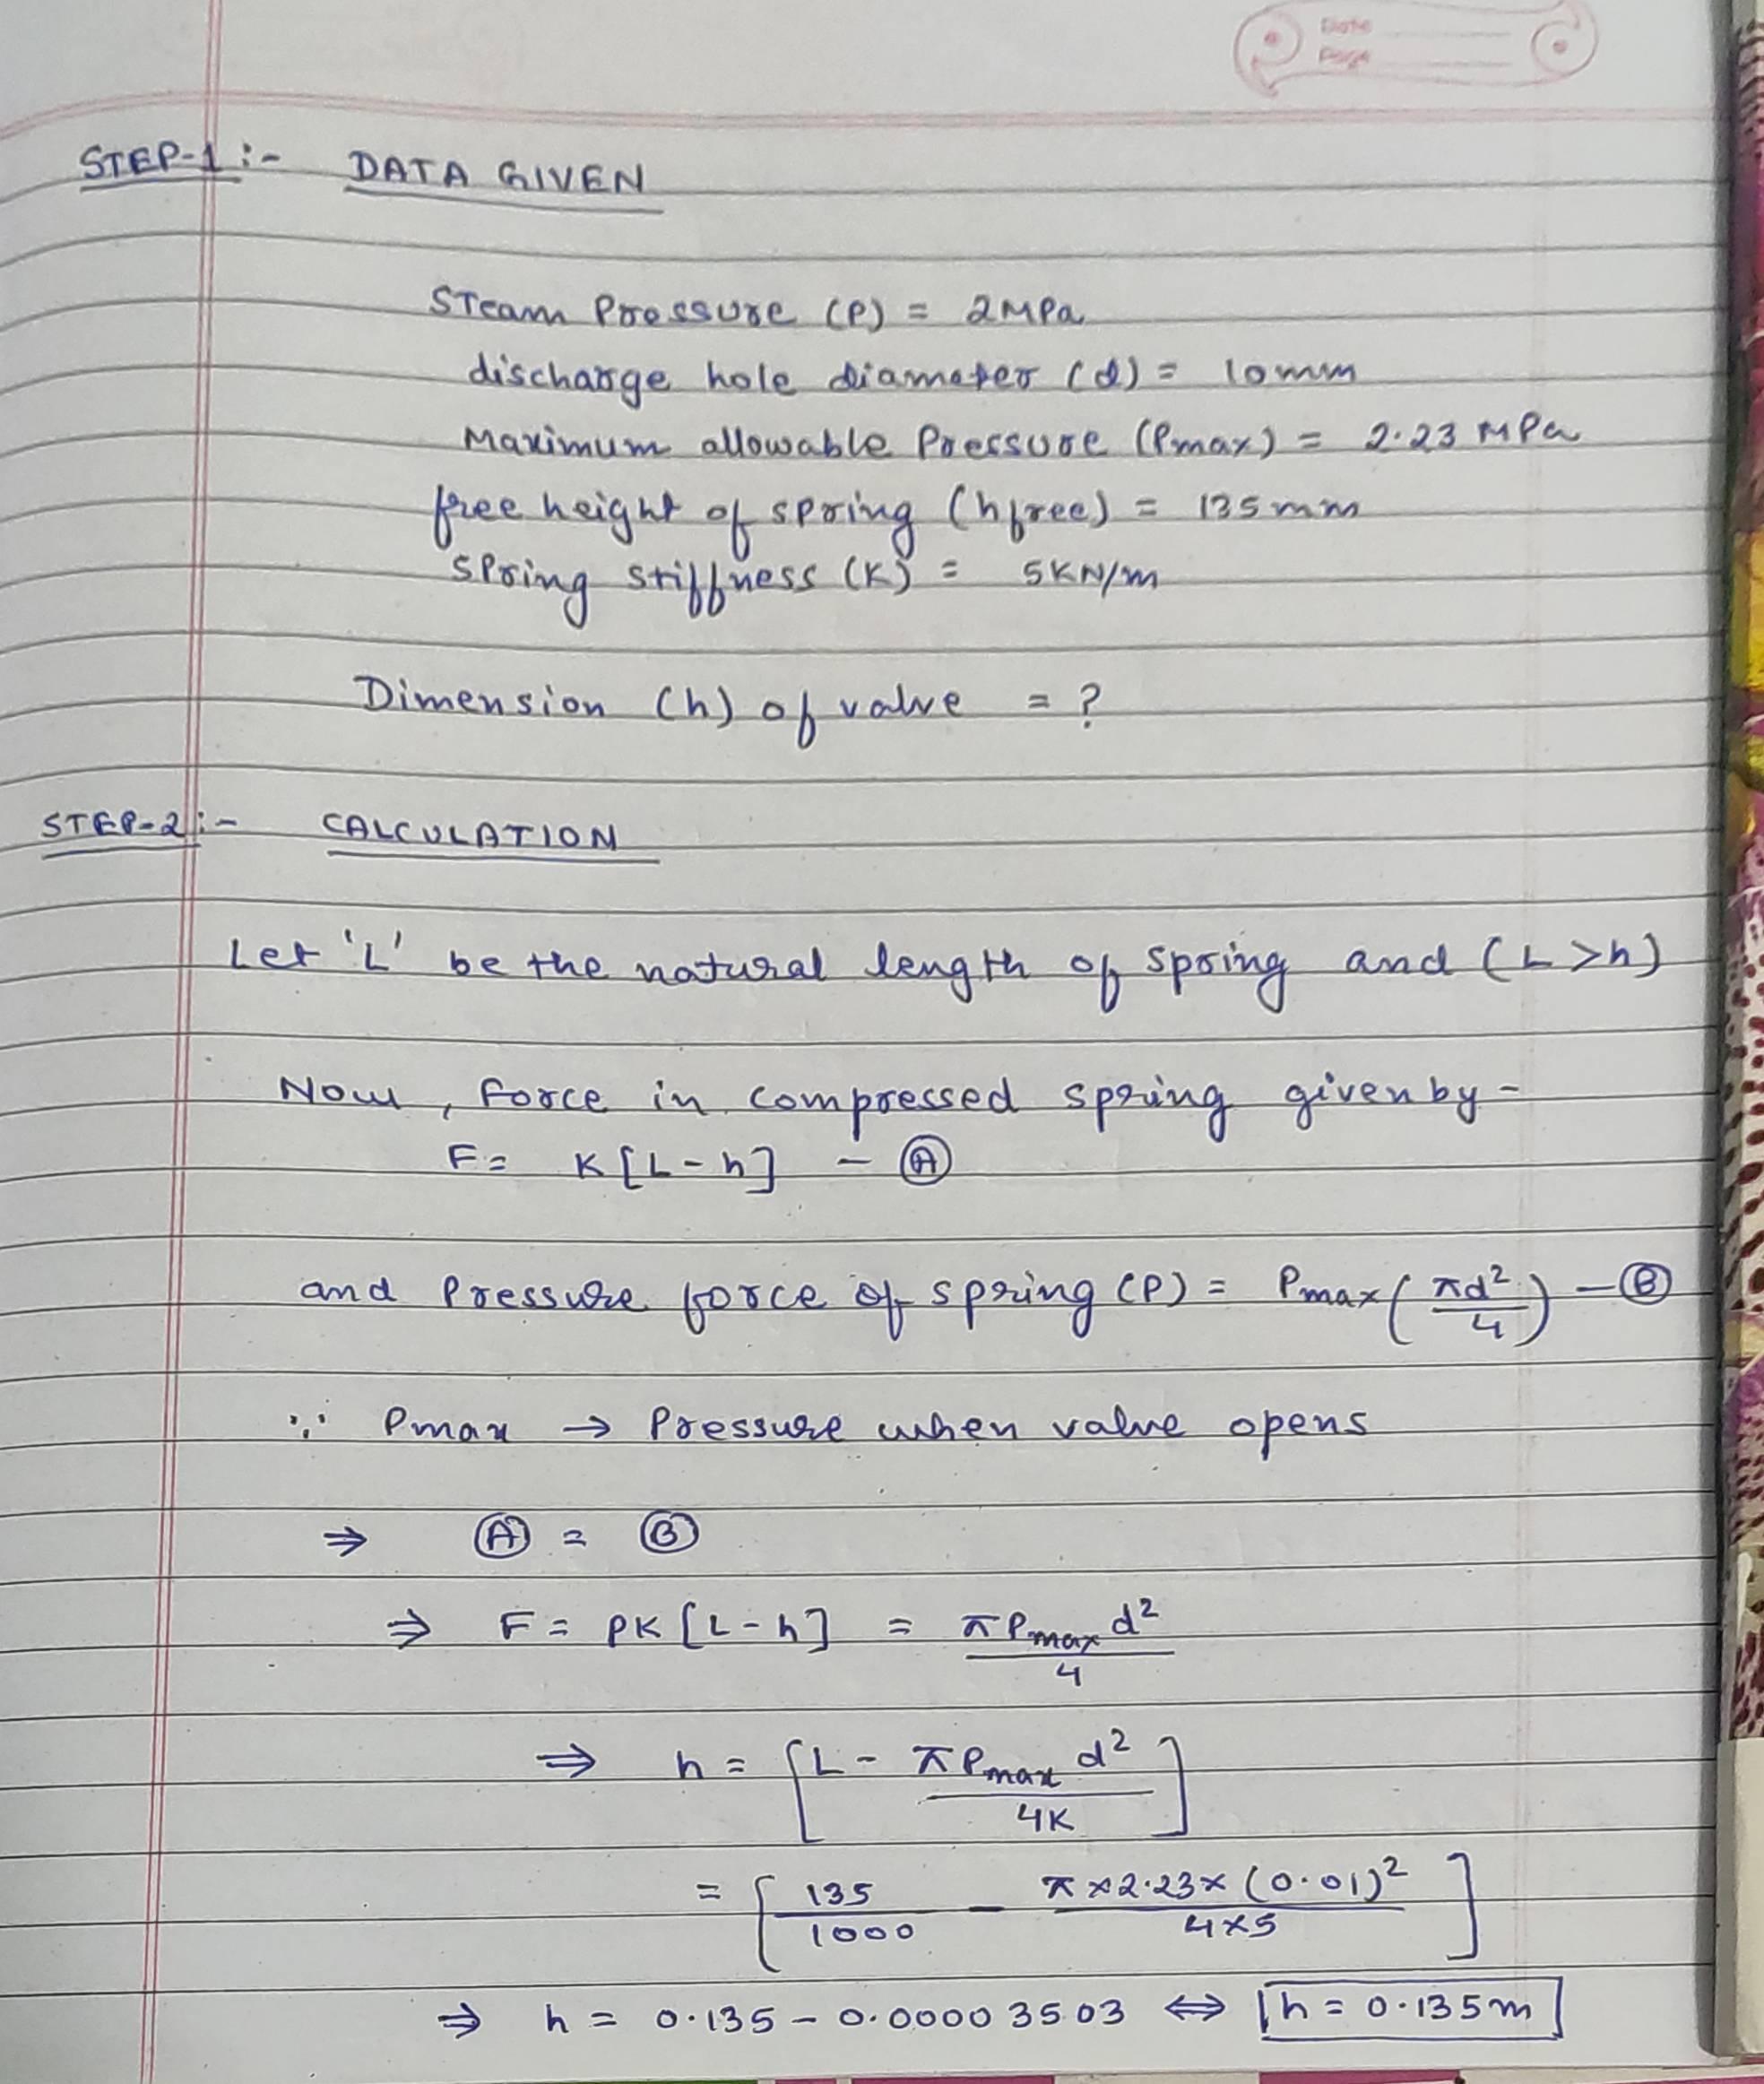 Date
Page
STEP-1:- DATA GIVEN
Steam Pressure (P) = 2MPa
discharge hole diameter (d) = 10mm
Maximum allowable Pressure (Pmax) = 2.23 MPa
free height of spring (hfree) = 135mm
Spring stiffness (K) = 5KN/m
Dimension (h) of valve = ?
STEP-2:- CALCULATION
Let 'L' be the natural length of spring and (L>h)
Now, force in compressed spring given by-
F= K[L-h] - Ⓐ
and Pressure force of spring (P) = Pmax(πd²/4) - Ⓑ
∵ Pmax → Pressure when valve opens
⇒ Ⓐ = Ⓑ
⇒ F = PK[L-h] = πPmax d²/4
⇒ h = [L - πPmax d²/4K]
= [135/1000 - π×2.23×(0.01)²/4×5]
⇒ h = 0.135 - 0.00003503 ⇔ h = 0.135m